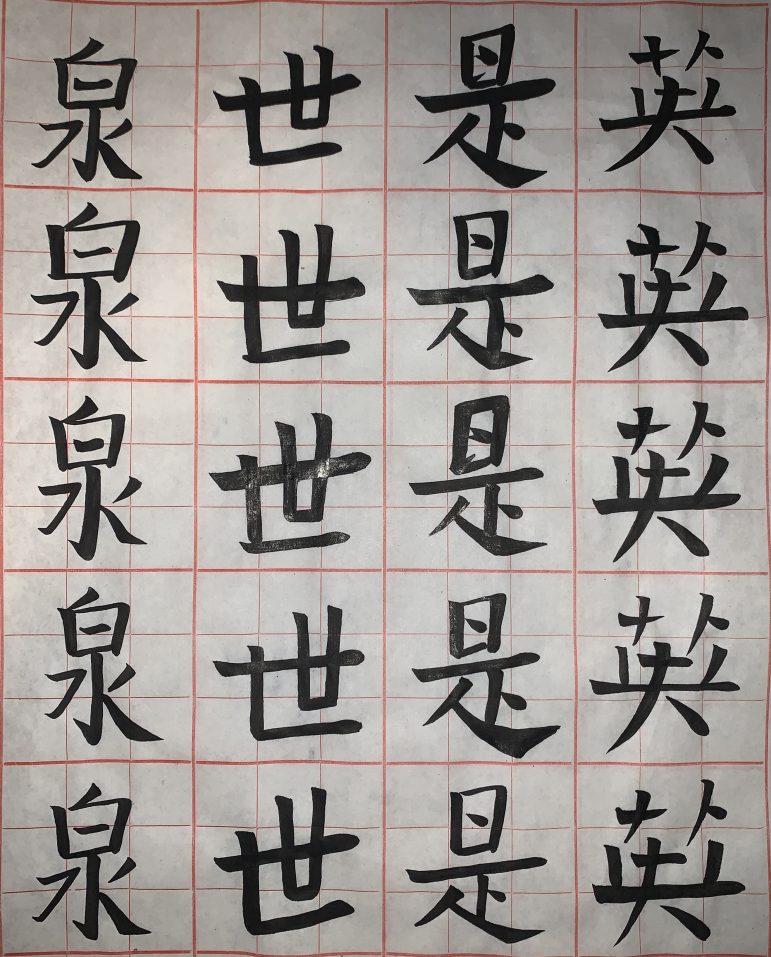 英英英英英
是是是是是
世世世世世
泉泉泉泉泉